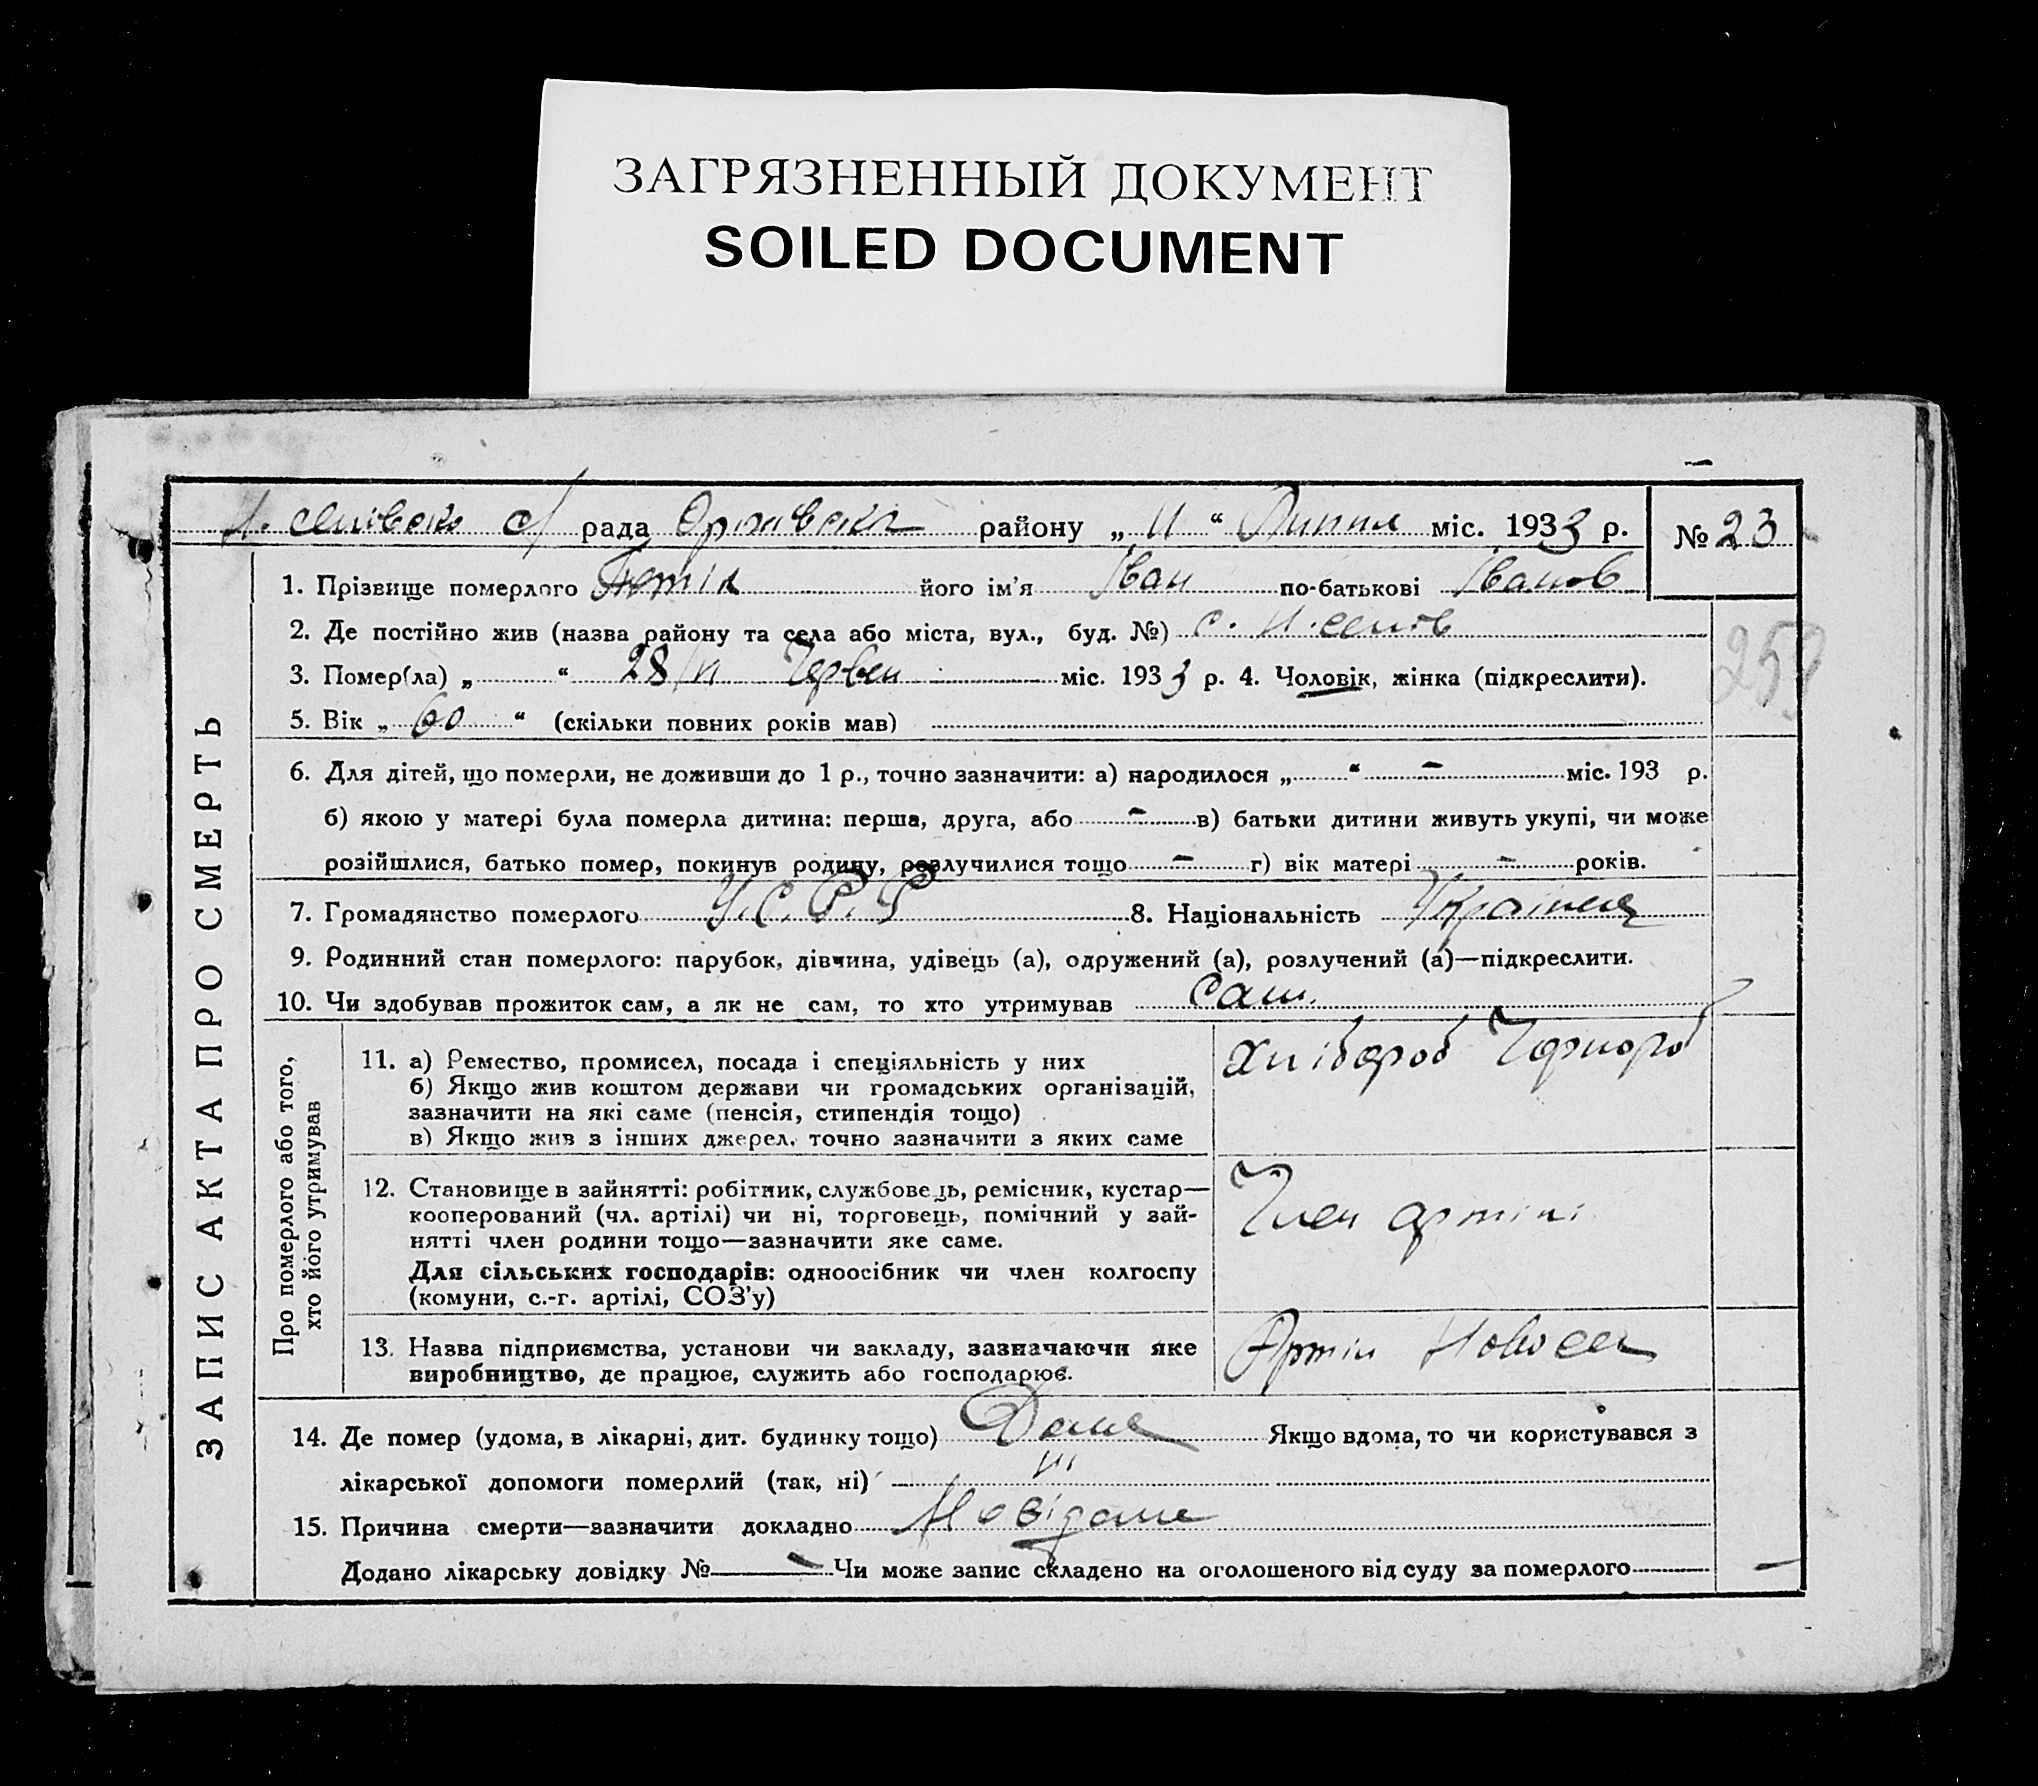 ЗАГРЯЗНЕННЫЙ ДОКУМЕНТ
SOILED DOCUMENT
рада району „ 11 “ Липня міс. 1933 р. № 23
1. Прізвище померлого його ім'я Іван по-батькові Іванов
2. Де постійно жив (назва району та села або міста, вул., буд. №) с.
3. Помер(ла) „ “ 28/VI Червен міс. 1933 р. 4. Чоловік, жінка (підкреслити).
5. Вік „ 60 “ (скільки повних років мав)
6. Для дітей, що померли, не доживши до 1 р., точно зазначити: а) народилося „ “ – міс. 193 р.
б) якою у матері була померла дитина: перша, друга, або – в) батьки дитини живуть укупі, чи може
розійшлися, батько помер, покинув родину, розлучилися тощо – г) вік матері – років.
7. Громадянство померлого У.С.Р.Р 8. Національність Українец
9. Родинний стан померлого: парубок, дівчина, удівець (а), одружений (а), розлучений (а)—підкреслити.
10. Чи здобував прожиток сам, а як не сам, то хто утримував Сам.
ЗАПИС АКТА ПРО СМЕРТЬ
Про померлого або того,
хто його утримував
11. а) Ремество, промисел, посада і спеціяльність у них
б) Якщо жив коштом держави чи громадських організацій,
зазначити на які саме (пенсія, стипендія тощо)
в) Якщо жив з інших джерел, точно зазначити з яких саме
Хлібороб Чорнороб
12. Становище в зайнятті: робітник, службовець, ремісник, кустар—
кооперований (чл. артілі) чи ні, торговець, помічний у зай-
нятті член родини тощо—зазначити яке саме.
Для сільських господарів: одноосібник чи член колгоспу
(комуни, с.-г. артілі, СОЗ'у)
Член артілі
13. Назва підприємства, установи чи закладу, зазначаючи яке
виробництво, де працює, служить або господарює.
Артіл Новосел
14. Де помер (удома, в лікарні, дит. будинку тощо) Дома Якщо вдома, то чи користувався з
лікарської допомоги померлий (так, ні)
15. Причина смерти—зазначити докладно Невідоме
Додано лікарську довідку № – Чи може запис складено на оголошеного від суду за померлого –